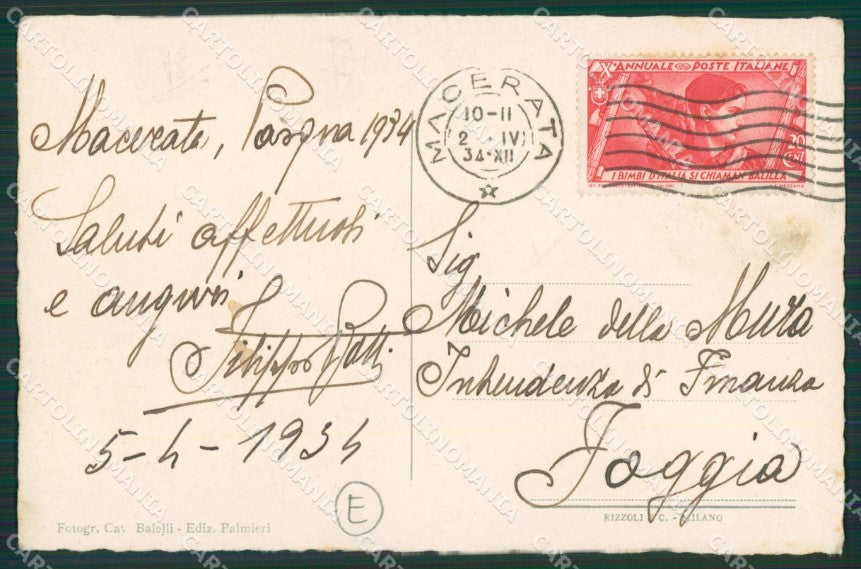 Macerata, Pasqua 1934
Saluti affettuosi
e auguri
Filippo
5-4-1934
Fotogr. Cav. Balelli - Ediz. Palmieri
E
MACERATA
10-11
2 · IV
34·XII
X° ANNUALE POSTE ITALIANE
20
CENT
I BIMBI D'ITALIA SI CHIAMAN BALILLA
Sig
Michele della Mura
Intendenza di Finanza
Foggia
RIZZOLI & C. - MILANO
CARTOLINOMANIA